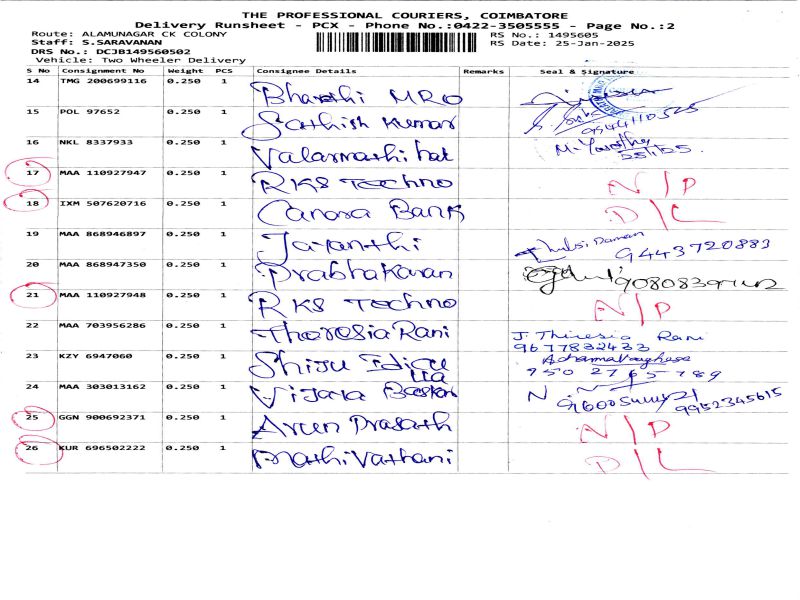 THE PROFESSIONAL COURIERS, COIMBATORE
Delivery Runsheet - PCX - Phone No.:0422-3505555 - Page No.:2
Route: ALAMUNAGAR CK COLONY RS No.: 1495605
Staff: S.SARAVANAN RS Date: 25-Jan-2025
DRS No.: DCJB149560502
Vehicle: Two Wheeler Delivery
S No Consignment No Weight PCS Consignee Details Remarks Seal & Signature
14 TMG 200699116 0.250 1 Bharathi MRO
15 POL 97652 0.250 1 Sathish Kumar
16 NKL 8337933 0.250 1 Valarmathi
17 MAA 110927947 0.250 1 RKS Techno N/P
18 IXM 507620716 0.250 1 Canara Bank D/L
19 MAA 868946897 0.250 1 Jayanthi 9443720883
20 MAA 868947350 0.250 1 Prabhakaran
21 MAA 110927948 0.250 1 RKS Techno N/P
22 MAA 703956286 0.250 1 Theresia Rani J. Thiresia Rani
9677832433
23 KZY 6947060 0.250 1 Shiju
950 2765 789
24 MAA 303013162 0.250 1 Vijaya N 9952345615
25 GGN 900692371 0.250 1 Arun Prasath N/P
26 KUR 696502222 0.250 1 Mathivathani D/L